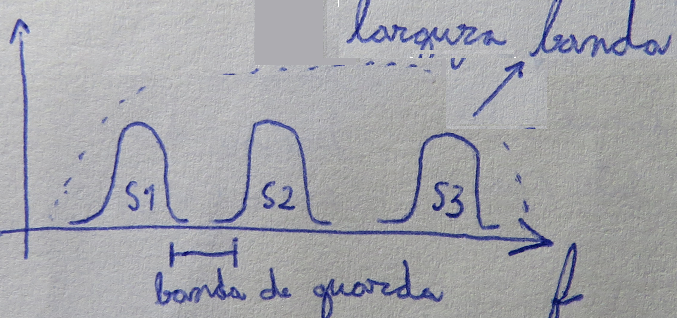 largura banda
S1 S2 S3
banda de guarda
f